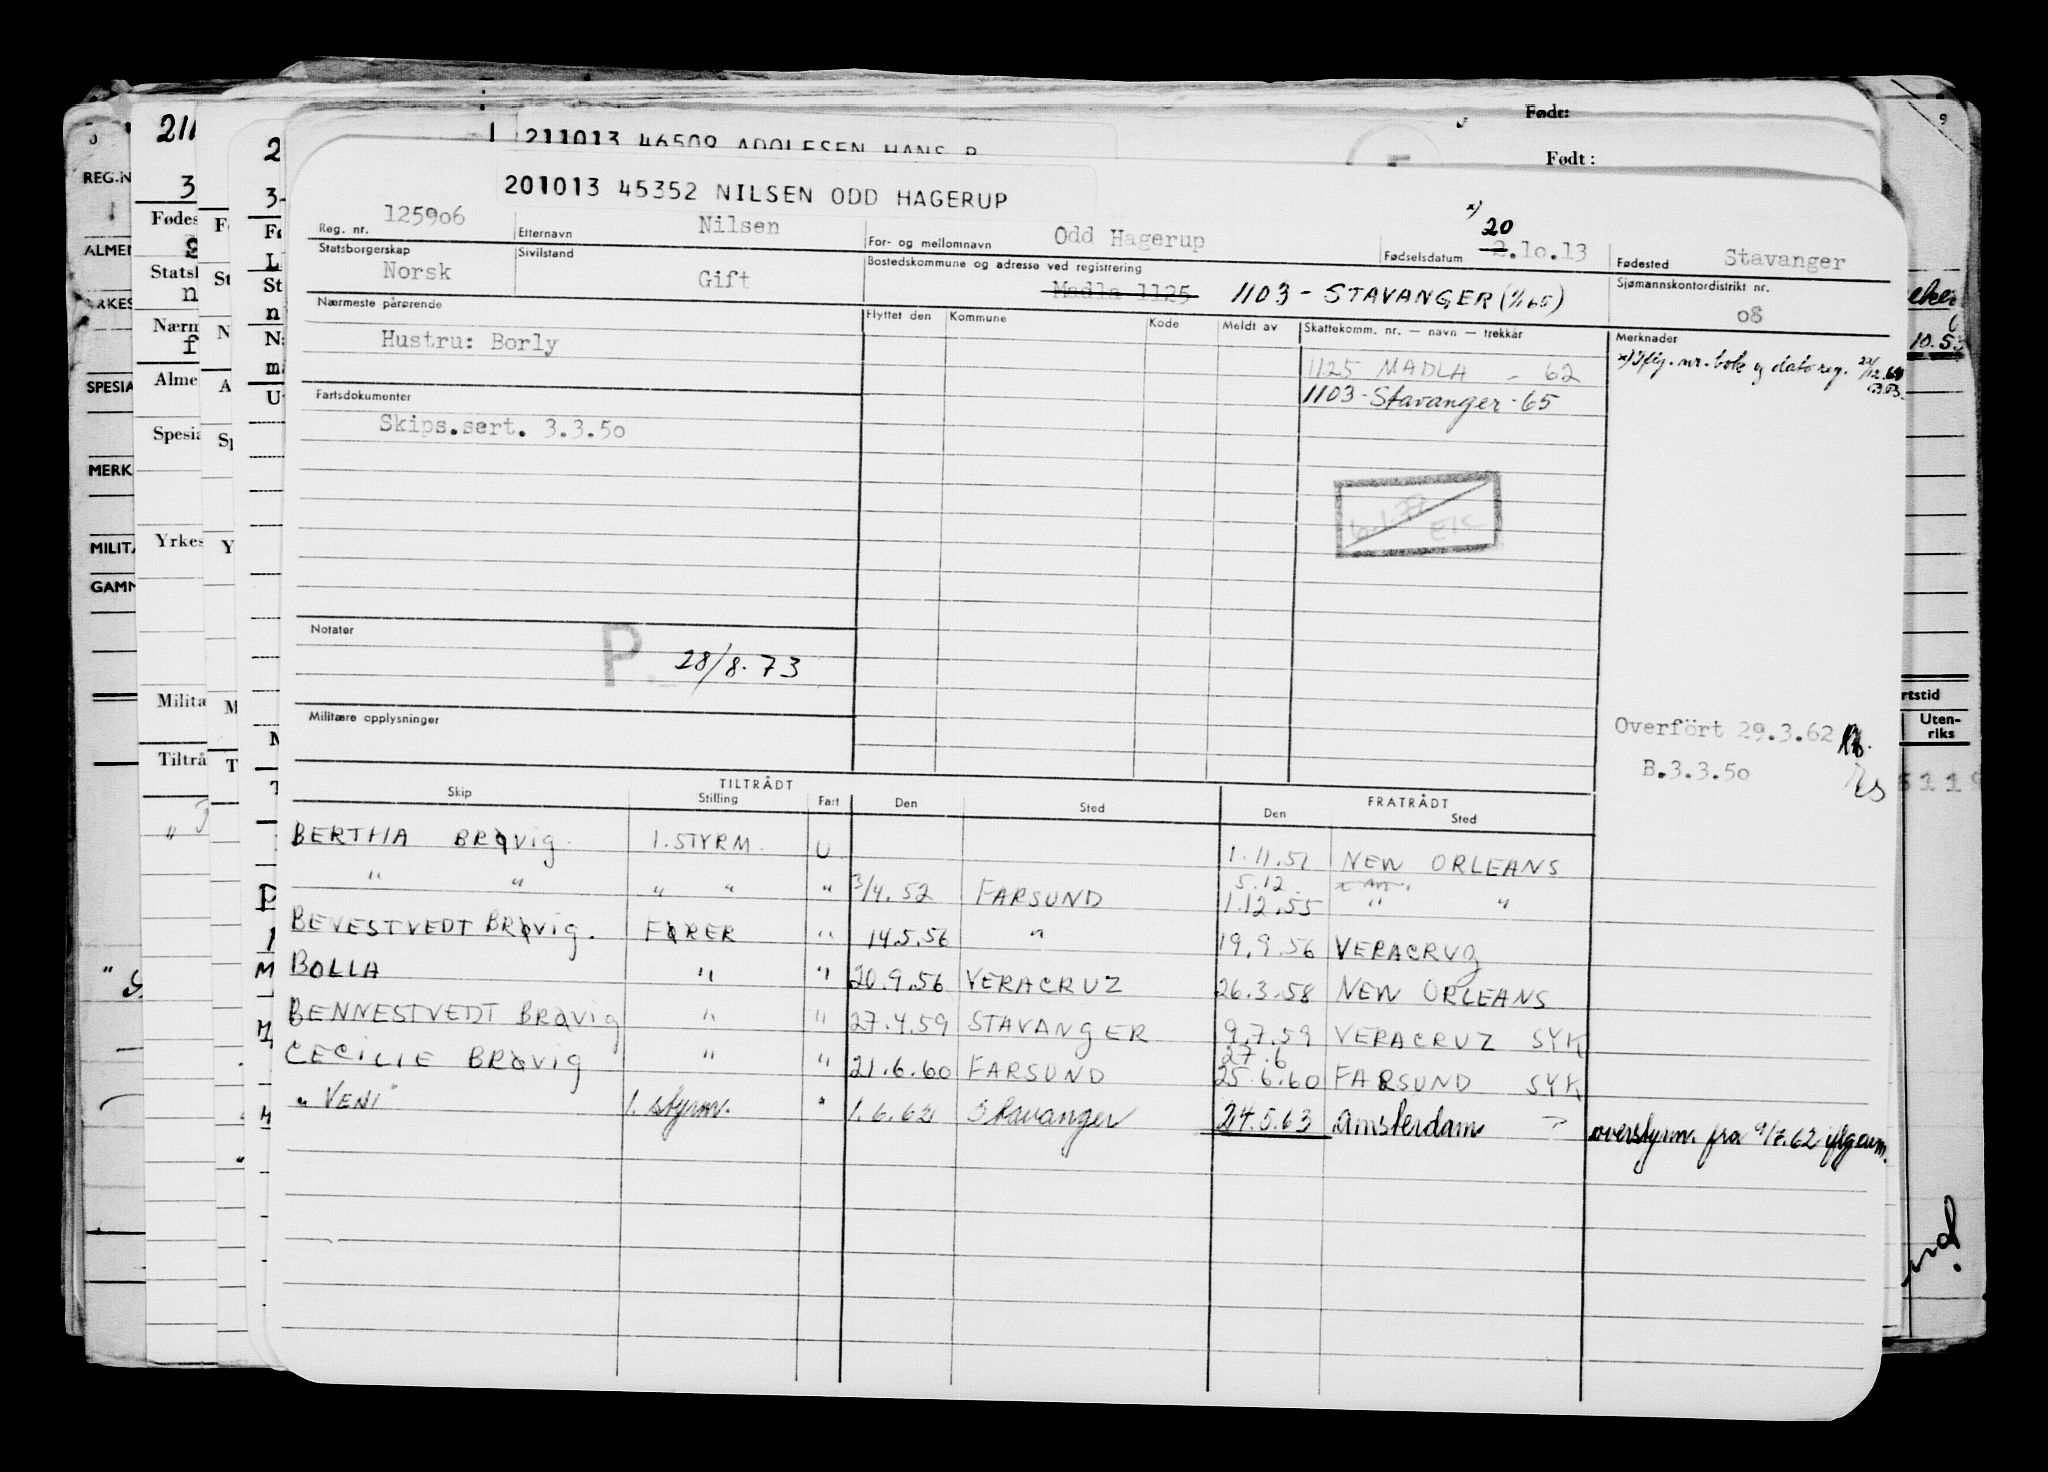 Født:
211013 46509 ADOLFSEN HANS P
Født :
201013 45352 NILSEN ODD HAGERUP
Reg. nr. 125906 Etternavn Nilsen For- og mellomnavn Odd Hagerup Fødselsdatum x) 20 2.10.13 Fødested Stavanger
Statsborgerskap Norsk Sivilstand Gift Bostedskommune og adresse ved registrering Madla 1125 1103 - STAVANGER (1/1 65) Sjømannskontordistrikt nr. 08
Nærmeste pårørende Flyttet den Kommune Kode Meldt av Skattekomm. nr. — navn — trekkår Merknader
Hustru: Borly 1125 MADLA - 62
Fartsdokumenter 1103 - Stavanger - 65
Skips.sert. 3.3.50
Notater
P 28/8.73
Militære opplysninger
Overfört 29.3.62
B.3.3.50
TILTRÅDT FRATRÅDT
Skip Stilling Fart Den Sted Den Sted
BERTHA BRØVIG. 1. STYRM. U 1.11.51 NEW ORLEANS
" " " " " 3/4.52 FARSUND 5.12. 1.12.55 " "
BEVESTVEDT BRØVIG. FØRER " 14.5.56 " 19.9.56 VERACRUZ
BOLLA " " 20.9.56 VERACRUZ 26.3.58 NEW ORLEANS
BENNESTVEDT BRØVIG " " 27.4.59 STAVANGER 9.7.59 VERACRUZ SYK
CECILIE BRØVIG " " 21.6.60 FARSUND 27.6 25.6.60 FARSUND SYK
"VENI" 1. styrm. " 1.6.62 Stavanger 24.5.63 Amsterdam ? overstyrm. fra 9/7.62
REG.N
ALMEN
SPESIA
MERK
MILITÆ
GAMM
Fødes
Statsb
Nærm
Alme
Spesia
Yrkes
Militæ
Tiltrå
10.53
rtstid
Uten-
riks